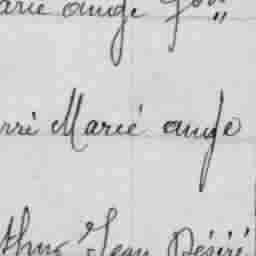 arie ange
rré Marié ange
thur Jean Désiré